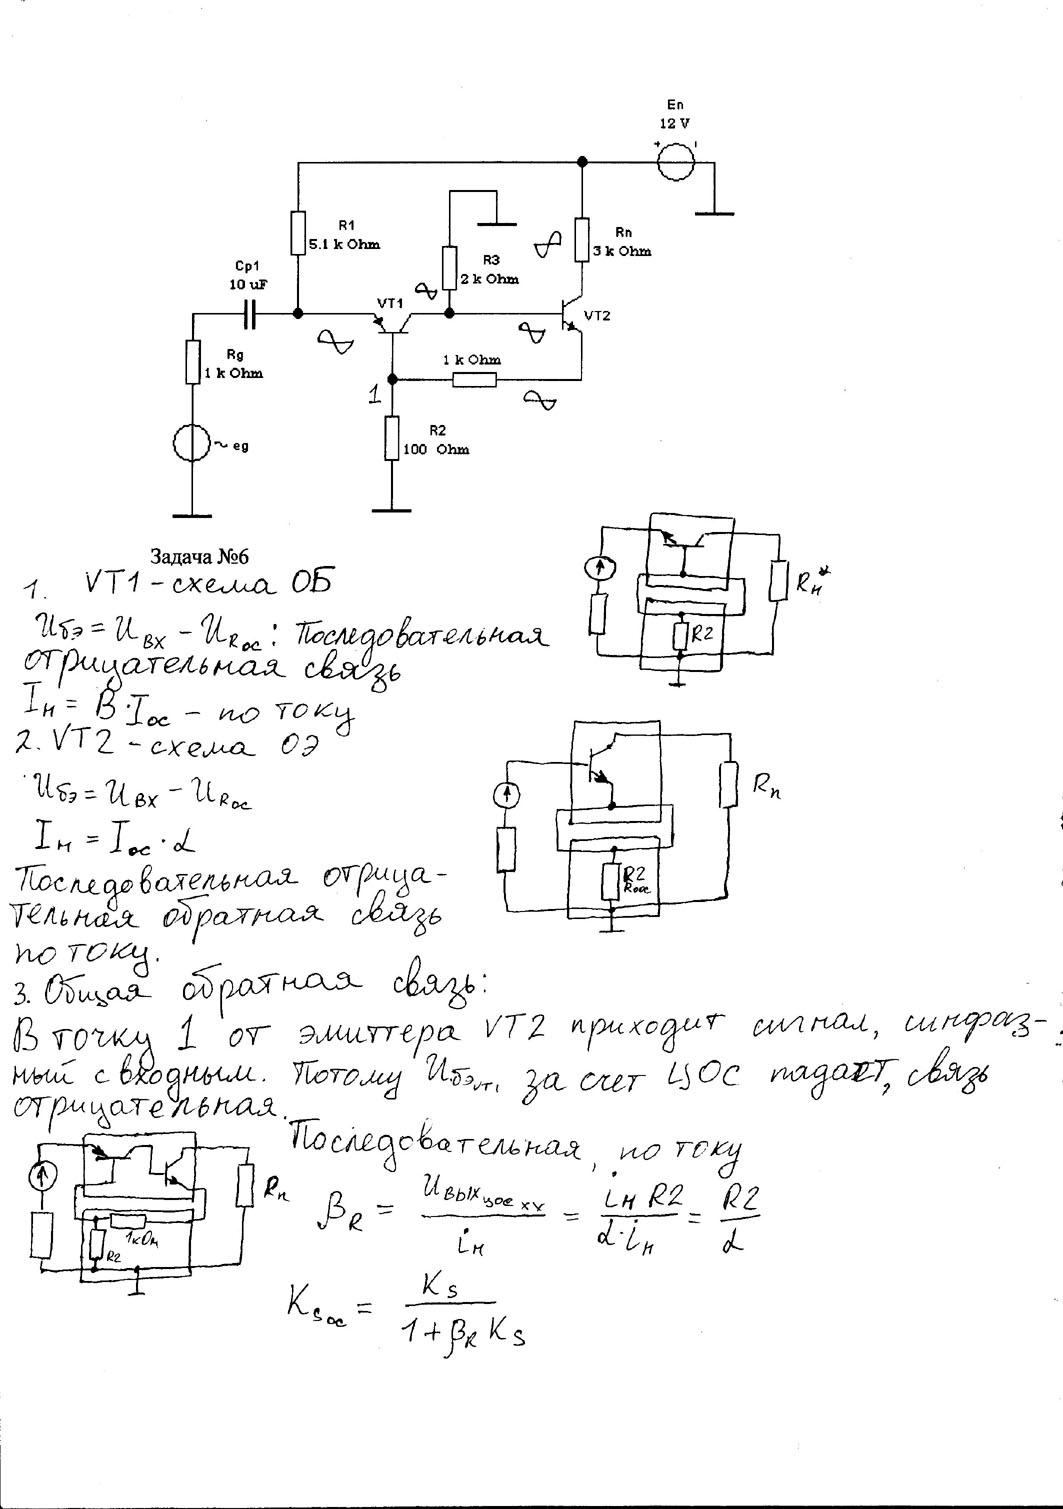 En
12 V
R1
5.1 k Ohm
R3
2 k Ohm
Rn
3 k Ohm
Cp1
10 uF
VT1
VT2
Rg
1 k Ohm
1 k Ohm
1
~ eg
R2
100 Ohm
Задача №6
1. VT1 - схема ОБ
Uбэ = Uвх - URос: Последовательная
отрицательная связь
Iн = В·Iос - по току
Rн*
R2
2. VT2 - схема ОЭ
Uбэ = Uвх - URос
Iн = Iос·α
Последовательная отрица-
тельная обратная связь
по току.
Rn
R2
Rоос
3. Общая обратная связь:
В точку 1 от эмиттера VT2 приходит сигнал, синфаз-
ный с входным. Потому Uбэvт1 за счет ЦОС падает, связь
отрицательная.
Последовательная, по току
Rn
1кОм
R2
βR = Uвыхцос хх / iн = iн R2 / α·iн = R2 / α
KSос = KS / 1 + βR KS